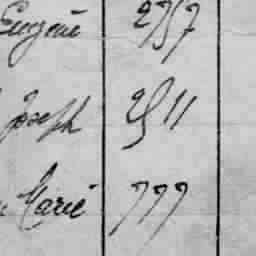 Eugène 2757
Joseph 2511
Marie 777